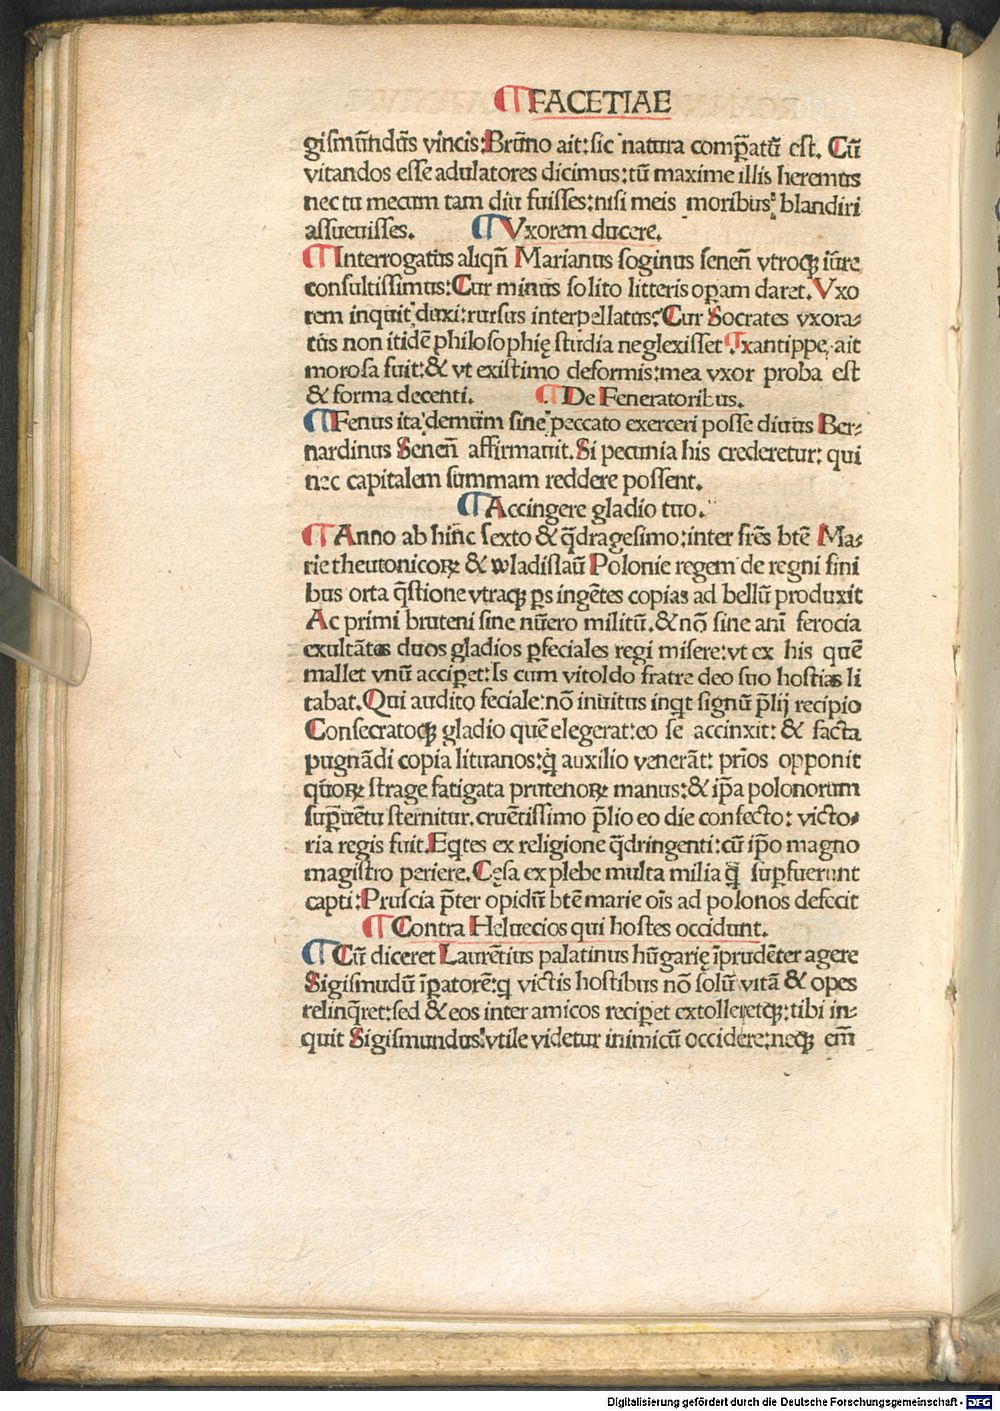 ¶FACETIAE
giſmūndūs vincis:Brūno ait:sic natura comꝑatū eſt. Cū
vitandos eſſe adulatores dicimus:tū maxime illis heremus
nec tu mecum tam diu fuiſſes:niſi meis moribus blandiri
aſſueuiſſes. ¶Vxorem ducere.
¶Interrogatus aliqñ Marianus ſoginus ſeneñ vtroqꝫ iure
conſultiſſimus:Cur minus ſolito litteris oꝑam daret. Vxo
rem inquit duxi:rurſus interpellatus:Cur Socrates vxora-
tus non itidē philoſophię ſtudia neglexiſſet ¶xantippe ait
moroſa fuit:& vt exiſtimo deformis:mea vxor proba eſt
& forma decenti. ¶De Feneratoribus.
¶Fenus ita demum ſine peccato exerceri poſſe diuus Ber-
nardinus Seneñ affirmauit. Si pecunia his crederetur: qui
nec capitalem ſummam reddere poſſent.
¶Accingere gladio tuo.
¶Anno ab hinc ſexto & q̄drageſimo:inter fr̄es btē Ma-
rie theutonicoꝝ & wladiſlaū Polonie regem de regni fini
bus orta q̄ſtione vtraqꝫ ꝑs ingētes copias ad bellū produxit
Ac primi bruteni ſine nūero militū.& nō ſine ani ferocia
exultātes duos gladios ꝑfeciales regi miſere:vt ex his quē
mallet vnū acciꝑet:Is cum vitoldo fratre deo ſuo hoſtias li
tabat. Qui audito feciale:nō inuitus inqt ſignū p̄lij recipio
Conſecratoqꝫ gladio quē elegerat:eo ſe accinxit: & facta
pugnādi copia lituanos:q̇ auxilio venerāt: prīos opponit
quoꝝ ſtrage fatigata prutenoꝝ manus:& ip̄a polonorum
ſuꝑuētu ſternitur. cruētiſſimo p̄lio eo die confecto: victo-
ria regis fuit. Eqtes ex religione q̄dringenti:cū ip̄o magno
magiſtro periere. Ceſa ex plebe multa milia q̄ ſuꝑfuerunt
capti:Pruſcia p̄ter opidū btē marie oīs ad polonos defecit
¶Contra Heluecios qui hoſtes occidunt.
¶Cū diceret Laurētius palatinus hūgarię īprudēter agere
Sigiſmudū īꝑatorē:q victis hoſtibus nō ſolū vitā & opes
relinq̄ret:ſed & eos inter amicos reciꝑet extolleretqꝫ:tibi in-
quit Sigiſmundus:vtile videtur inimicū occidere:neqꝫ em̄
Digitalisierung gefördert durch die Deutsche Forschungsgemeinschaft - DFG